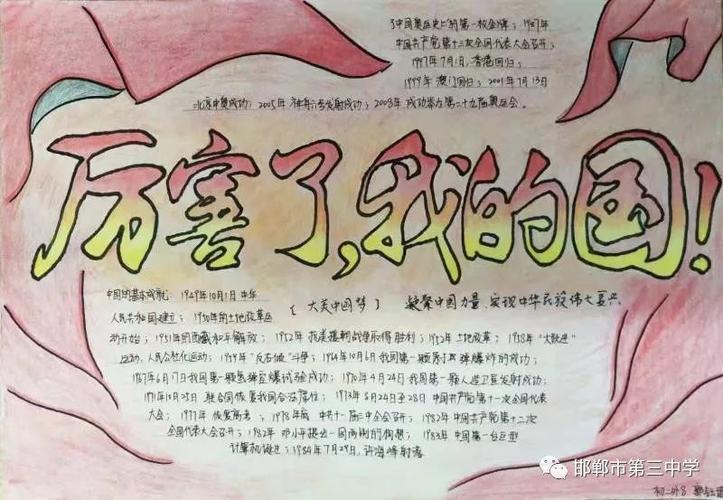 了中国奥运史上的第一枚金牌；1987年
中国共产党第十三次全国代表大会召开；
1997年7月1日，香港回归；
1999年 澳门回归；2001年7月13日
北京申奥成功；2005年 神舟六号发射成功；2008年 成功举办第二十九届奥运会。
厉害了，我的国！
中国的基本成就：1949年10月1日 中华
【大美中国梦】 凝聚中国力量，实现中华民族伟大复兴
人民共和国建立；1950年的土地改革运
动开始；1951年的西藏和平解放；1952年 抗美援朝战争取得胜利；1952年 土地改革；1958年“大跃进”
运动、人民公社化运动；1959年“反右倾”斗争；1964年10月6日 我国第一颗原子弹爆炸的成功；
1967年6月17日我国第一颗氢弹空爆试验成功；1970年4月24日我国第一颗人造卫星发射成功；
1971年10月25日 联合国恢复我国合法席位；1973年8月24日至28日 中国共产党第十一次全国代表
大会；1977年 恢复高考；1978年底 中共十一届三中全会召开；1982年 中国共产党第十二次
全国代表大会召开；1982年 邓小平提出一国两制的构想；1983年 中国第一台巨型
计算机诞生；1984年7月29日，许海峰射落
初二外8
邯郸市第三中学